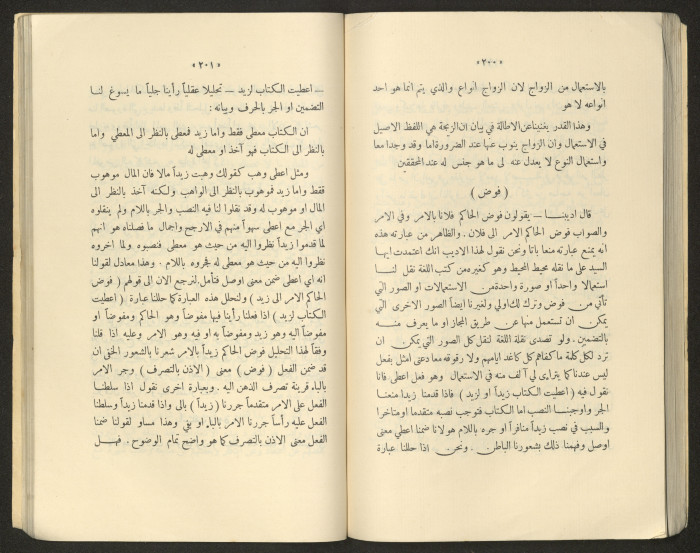 «٢٠٠»
بالاستعمال من الزواج لان الزواج انواع والذي يتم انما هو احد
انواعه لا هو
وهذا القدر يغنينا عن الاطالة في بيان ان الزيجة هي اللفظ الاصيل
في الاستعمال وان الزواج ينوب عنها عند الضرورة اما وقد وجدا معا
واستعمال النوع لا يعدل عنه الى ما هو جنس له عند المحققين
( فوض )
قال اديبنا — يقولون فوض الحاكم فلانا بالامر وفي الامر
والصواب فوض الحاكم الامر الى فلان . والظاهر من عبارته هذه
انه يمنع عبارته منعا باتا ونحن نقول لهذا الاديب انك اعتمدت ايها
السيد على ما نقله محيط المحيط وهو كغيره من كتب اللغة نقل لنا
استعمالا واحداً او صورة واحدة من الاستعمالات او الصور التي
تأتي من فوض وترك لك ولي ولغيرنا ايضاً الصور الاخرى التي
يمكن ان تستعمل منها عن طريق المجاز او ما يعرف منه
بالتضمين . ولو تصدى نقلة اللغة لنقل كل الصور التي يمكن ان
ترد لكل كلمة ما كفاهم كل كاغد ايامهم ولا رقوقه معا دعنى امثل بفعل
ليس عندنا كما يتراءى لي آلف منه في الاستعمال وهو فعل اعطى فانا
نقول فيه ( اعطيت الكتاب زيداً او لزيد ) فاذا قدمنا زيداً منعنا
الجر واوجبنا النصب اما الكتاب فنوجب نصبه متقدما ومتأخرا
والسبب في نصب زيداً منافراً او جره باللام هو لانا ضمنا اعطي معنى
اوصل وفهمنا ذلك بشعورنا الباطن . ونحن اذا حللنا عبارة
«٢٠١»
— اعطيت الكتاب لزيد — تحليلا عقلياً رأينا جلياً ما يسوغ لنا
التضمين او الجر بالحرف وبيانه :
ان الكتاب معطى فقط واما زيد فمعطى بالنظر الى المعطي واما
بالنظر الى الكتاب فهو آخذ او معطى له
ومثل اعطى وهب كقولك وهبت زيداً مالا فان المال موهوب
فقط واما زيد فموهوب بالنظر الى الواهب ولكنه آخذ بالنظر الى
المال او موهوب له وقد نقلوا لنا فيه النصب والجر باللام ولم ينقلوه
اي الجر مع اعطى سهواً منهم في الارجح واجمال ما فصلناه هو انهم
لما قدموا زيداً نظروا اليه من حيث هو معطى فنصبوه ولما اخروه
نظروا اليه من حيث هو معطى له فجروه باللام . وهذا معادل لقولنا
انه اي اعطى ضمن معنى اوصل فتأمل لنرجع الان الى قولهم ( فوض
الحاكم الامر الى زيد ) ولنحلل هذه العبارة كما حللنا عبارة ( اعطيت
الكتاب لزيد ) اذا فعلنا رأينا فيها مفوضاً وهو الحاكم ومفوضاً او
مفوضاً اليه وهو زيد ومفوضاً به او فيه وهو الامر وعليه اذا قلنا
وفقاً لهذا التحليل فوض الحاكم زيداً بالامر شعرنا بالشعور الخفي ان
قد ضمن الفعل ( فوض ) معنى ( الاذن بالتصرف ) وجر الامر
بالباء قرينة تصرف الذهن اليه . وبعبارة اخرى نقول اذا سلطنا
الفعل على الامر متقدماً جررنا ( زيداً ) بالى واذا قدمنا زيداً وسلطنا
الفعل عليه رأساً جررنا الامر بالباء او بفي وهذا مساو لقولنا ضمنا
الفعل معنى الاذن بالتصرف كما هو واضح تمام الوضوح . فهل